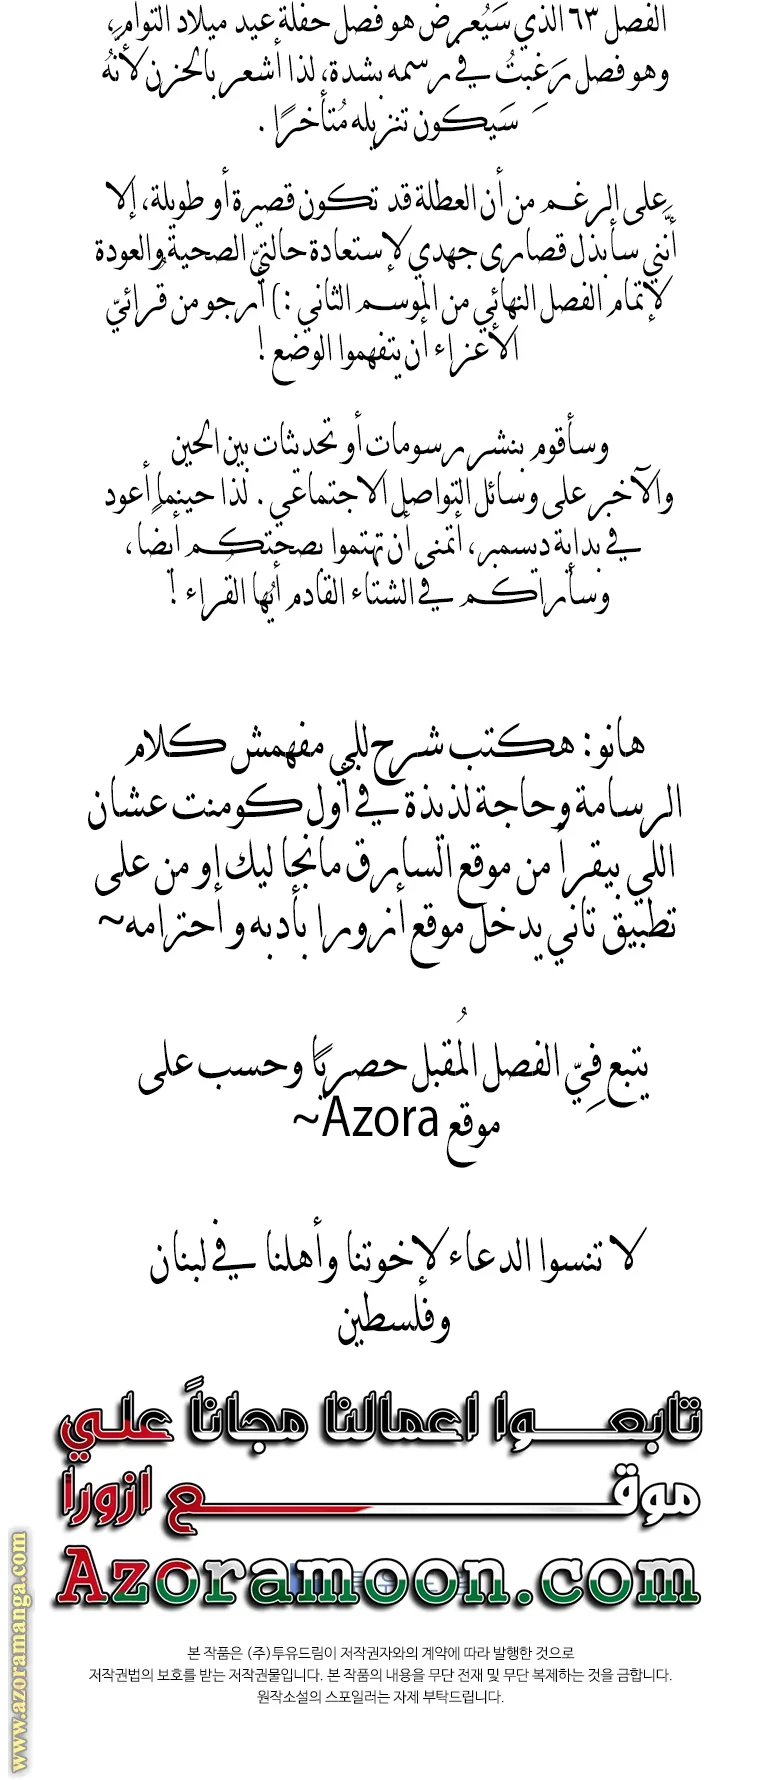 الفصل ٦٣ الذي سَيُعرض هو فصل حفلة عيد ميلاد التوأم،
وهو فصل رَغِبتُ في رسمه بشدة، لذا أشعر بالحزن لأنَّهُ
سَيكون تنزيله مُتأخرًا .
على الرغم من أن العطلة قد تكون قصيرة أو طويلة، إلا
أنَّني سأبذل قصارى جهدي لإستعادة حالتيّ الصحية والعودة
لإتمام الفصل النهائي من الموسم الثاني :) أرجو من قُرائيّ
الأعزاء أن يتفهموا الوضع !
وسأقوم بنشر رسومات أو تحدثات بين الحين
والآخر على وسائل التواصل الاجتماعي . لذا حينما أعود
في بداية ديسمبر، أتمنى أن تهتموا بصحتكم أيضًا،
وسأراكم في الشتاء القادم أيُها القراء !
هانو: هكتب شرح للي مفهمش كلام
الرسامة وحاجة لذيذة في أول كومنت عشان
اللي بيقرأ من موقع السارق مانجا ليك او من على
تطبيق تاني يدخل موقع أزورا بأدبه و احترامه~
يتبع فِيّ الفصل المُقبل حصريًا وحسب على
موقع Azora~
لا تنسوا الدعاء لإخوتنا وأهلنا في لبنان
وفلسطين
تابعوا اعمالنا مجاناً علي
موقع ازورا
Azoramoon.com
www.azoramanga.com
본 작품은 (주)투유드림이 저작권자와의 계약에 따라 발행한 것으로
저작권법의 보호를 받는 저작권물입니다. 본 작품의 내용을 무단 전재 및 무단 복제하는 것을 금합니다.
원작소설의 스포일러는 자제 부탁드립니다.